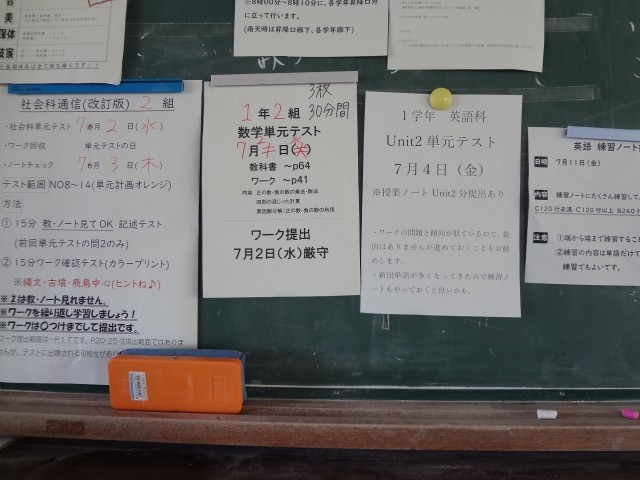 美
保体
技家
※8時00分～8時10分に、各学年昇降口外
に立って行います。
(雨天時は昇降口廊下、各学年廊下)
社会科通信(改訂版) 2 組
・社会科単元テスト 7月 2 日(水)
・ワーク回収 単元テストの日
・ノートチェック 7月 3 日(木)
テスト範囲 NO8～14(単元計画オレンジ)
方法
① 15分 教・ノート見てOK 記述テスト
(前回単元テストの問2のみ)
② 15分ワーク確認テスト(カラープリント)
※縄文・古墳・飛鳥中心(ヒントね♪)
※2は教・ノート見れません。
※ワークを繰り返し学習しましょう！
※ワークは○つけまでして提出です。
3枚
30分間
1 年 2 組
数学単元テスト
7月
教科書 ～p64
ワーク ～p41
内容 正の数・負の数の乗法・除法
四則の混じった計算
素因数分解/正の数・負の数の利用
ワーク提出
7月2日(水)厳守
1学年 英語科
Unit2 単元テスト
7月4日(金)
※授業ノート Unit2 分提出あり
・ワークの問題と傾向が似ているので、提
出はありませんが進めておくことをお勧
めします。
・新出単語が多くなってきたので練習ノ
ートもやっておくと良いかも。
英語 練習ノート
日時 7月11日(金)
内容 練習ノートにたくさん練習して
C120行未満 C゚120行以上 B240
注意 ①端から端まで練習するこ
②練習の内容は単語だけで
練習でもよいです。